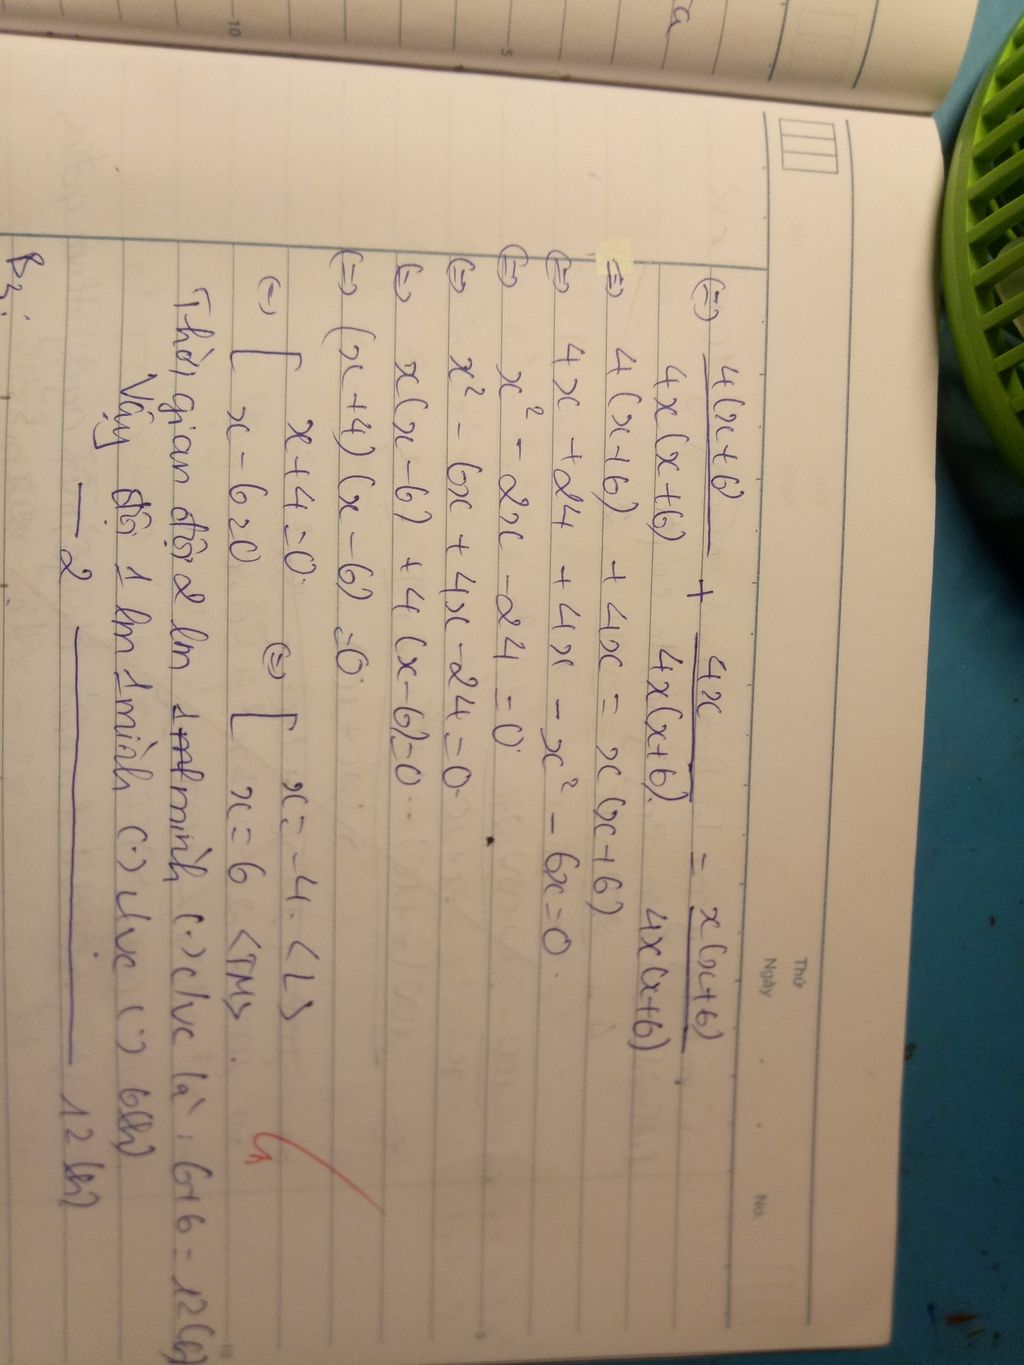 a
10
5
Thứ
Ngày
No.
(=) 4(x+6) + 4x = x(x+6)
4x(x+6) 4x(x+6). 4x(x+6)
=) 4(x+6) + 4x = x(x+6)
(=) 4x +24 + 4x - x² - 6x=0.
(=) x² - 2x - 24 = 0.
(=) x² - 6x + 4x - 24 = 0.
(=) x(x-6) + 4(x-6)=0.
(=) (x+4)(x-6) =0.
x+4=0. x=-4. <L>
(=) [ (=) [
x-6=0 x=6 <TM>.
Thời gian đội 2 lm 1 mình (.) c/vc là: 6+6 = 12(h)
Vậy đội 1 lm 1 mình (.) c/vc (.) 6(h)
— 2 — 12(h)
B3:
5
10